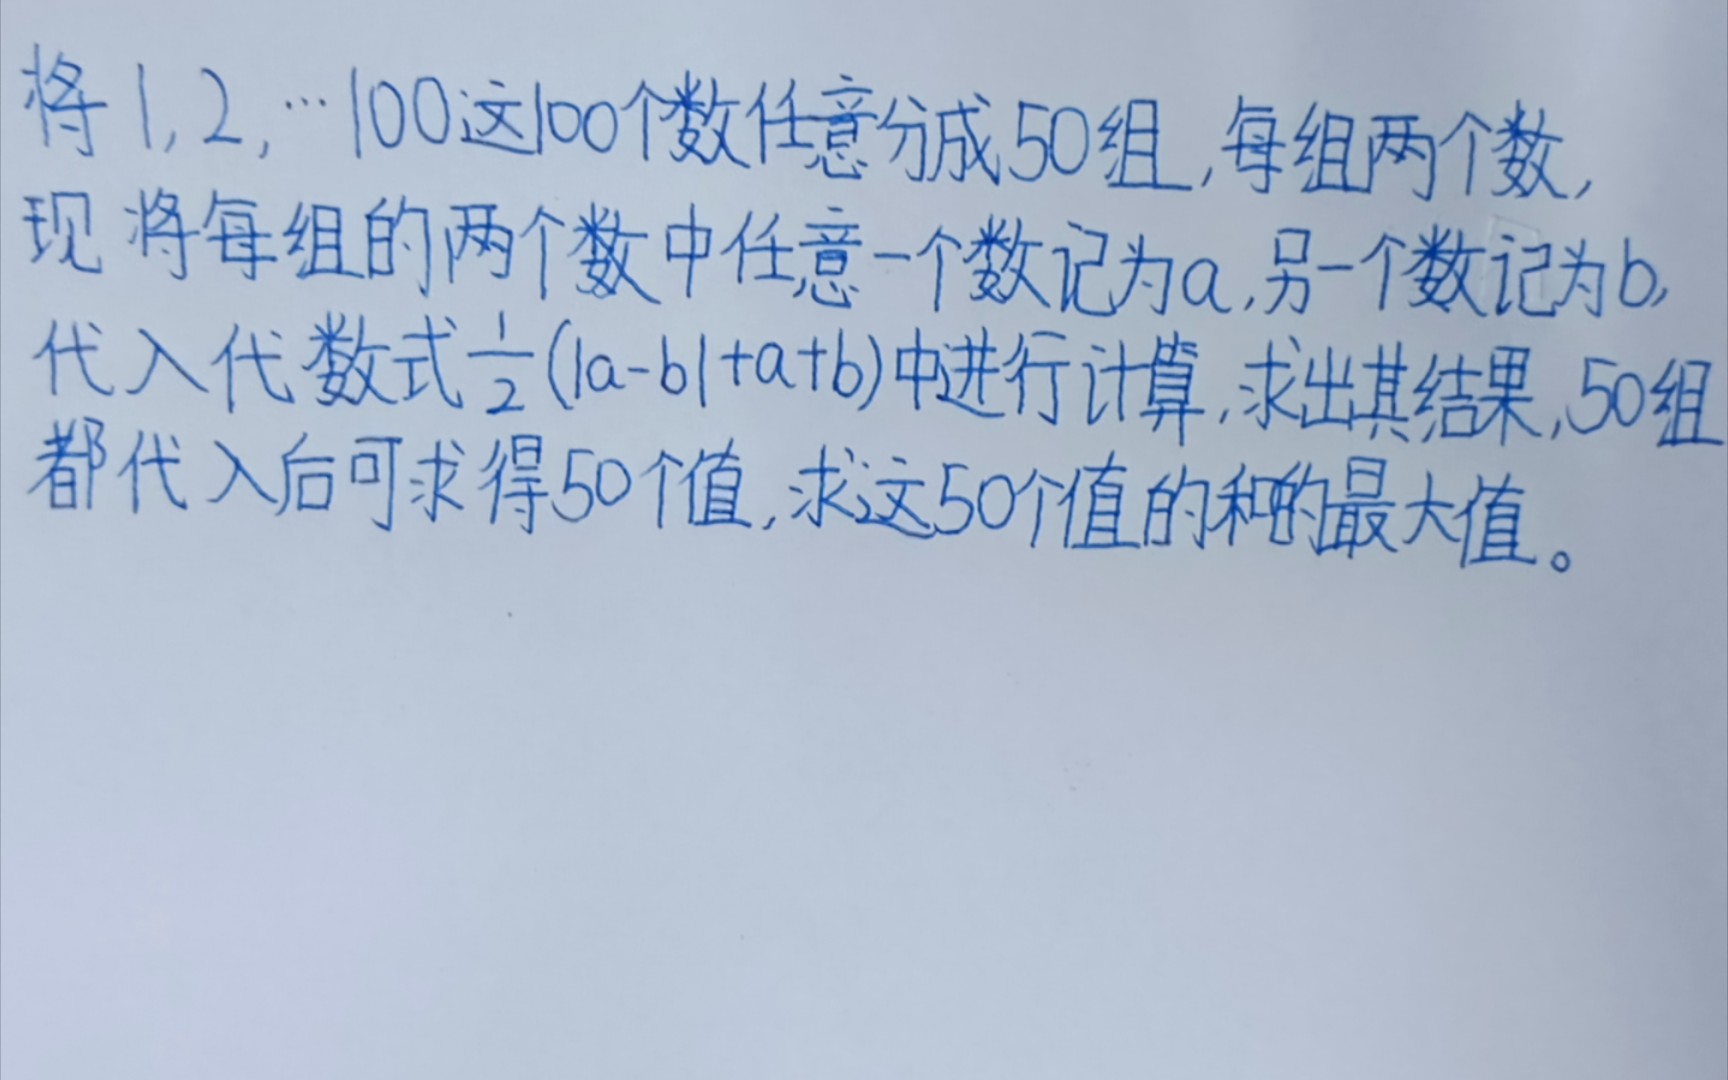 将1,2,…100这100个数任意分成50组,每组两个数,
现将每组的两个数中任意一个数记为a,另一个数记为b,
代入代数式1/2(|a-b|+a+b)中进行计算,求出其结果,50组
都代入后可求得50个值,求这50个值的和的最大值。